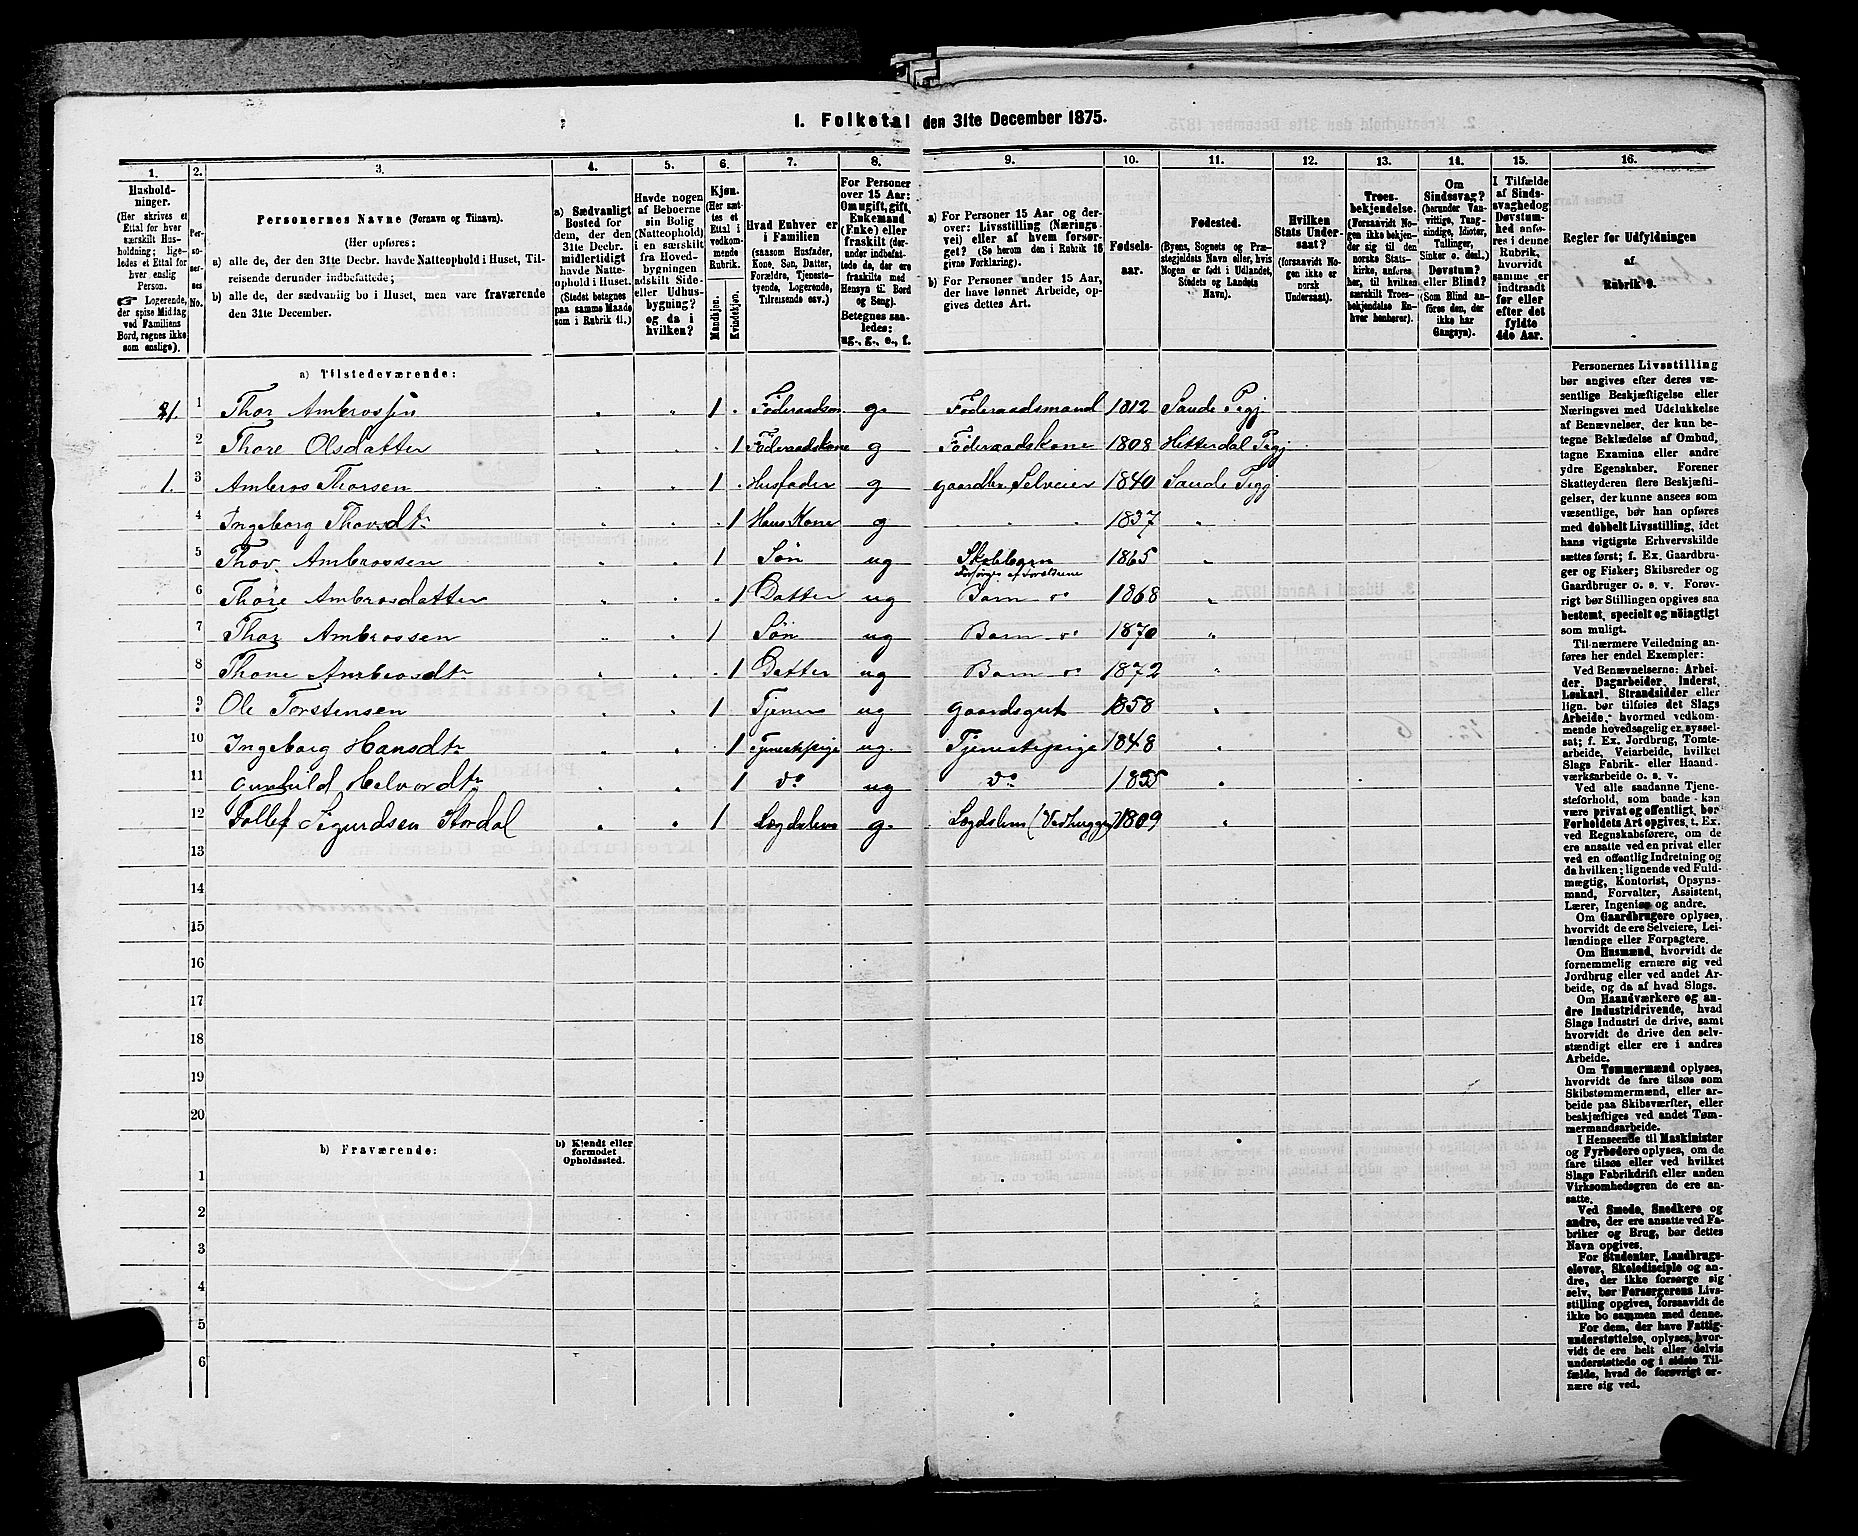 1. Folketal den 31te December 1875.
1. 2. 3. 4. 5. 6. 7. 8. 9. 10. 11. 12. 13. 14. 15. 16.
Hushold-
ninger.
(Her skrives et
Ettal for hver
særskilt Hus-
holdning; lige-
ledes et Ettal for
hver enslig
Person.
☞ Logerende,
der spise Middag
ved Familiens
Bord, regnes ikke
som enslige).
Per-
so-
ner-
nes
No.
Personernes Navne (Fornavn og Tilnavn).
(Her opføres:
a) alle de, der den 31te Decbr. havde Natteophold i Huset, Til-
reisende derunder indbefattede;
b) alle de, der sædvanlig bo i Huset, men vare fraværende
den 31te December.
a) Sædvanligt
Bosted for
dem, der den
31te Decbr.
midlertidigt
havde Natte-
ophold i Huset.
(Stedet betegnes
paa samme Maade
som i Rubrik 11.)
Havde nogen
af Beboerne
sin Bolig
(Natteophold)
i en særskilt
fra Hoved-
bygningen
adskilt Side-
eller Udhus-
bygning?
og da i
hvilken?
Kjøn.
(Her sæt-
tes et
Ettal i
vedkom-
mende
Rubrik.
Mandkjøn.
Kvindekjøn.
Hvad Enhver er
i Familien
(saasom Husfader,
Kone, Søn, Datter,
Forældre, Tjeneste-
tyende, Logerende,
Tilreisende osv.)
For Personer
over 15 Aar:
Om ugift, gift,
Enkemand
(Enke) eller
fraskilt (der-
under indbefat-
tede da, der ere
fraskilte med
Hensyn til Bord
og Seng).
Betegnes saa-
ledes:
ug., g., e., f.
a) For Personer 15 Aar og der-
over: Livsstilling (Nærings-
vei) eller af hvem forsør-
get? (Se herom den i Rubrik 16
givne Forklaring).
b) For Personer under 15 Aar,
der have lønnet Arbeide, op-
gives dettes Art.
Fødsels-
aar.
Fødested.
(Byens, Sognets og Præ-
stegjeldets Navn eller, hvis
Nogen er født i Udlandet,
Stedets og Landets
Navn).
Hvilken
Stats Under-
saat?
(forsaavidt No-
gen ikke er
norsk
Undersaat).
Troes-
bekjendelse.
(Forsaavidt No-
gen ikke bekjen-
der sig til den
norske Stats-
kirke, anføres
her, til hvilken
særskilt Troes-
bekjendelse En-
hver henhører).
Om
Sindssvag?
(herunder Van-
vittige, Tung-
sindige, Idioter,
Tullinger,
Sinker o. desl.)
Døvstum?
eller Blind?
(Som Blind an-
føres den, der
ikke har
Gangsyn).
I Tilfælde
af Sinds-
svaghed og
Døvstum-
hed anfø-
res i denne
Rubrik,
hvorvidt
samme er
indtraadt
før eller
efter det
fyldte
4de Aar.
Regler for Udfyldningen
af
Rubrik 9.
a) Tilstedeværende:
1 Thor Ambrossen 1 g. Føderaadsmand 1812 Saude Pgj
2 Thore Olsdatter 1 Føderaadskone g Føderaadskone 1808 Hitterdal Pgj
1. 3 Ambros Thorsen 1 Husfader g gaardbr. Selveier 1840 Saude Pgj
4 Ingeborg Thovsdtr 1 Hans Kone g " " 1837 "
5 Thov Ambrossen 1 Søn ug Skolebarn 1865 "
Forsørges af Forældrene
6 Thore Ambrosdatter 1 Datter ug Barn do 1868 "
7 Thor Ambrossen 1 Søn ug Barn do 1870 "
8 Thone Ambrosdtr 1 Datter ug Barn do 1872 "
9 Ole Torstensen 1 Tjener ug gaardsgut 1858 "
10 Ingeborg Hansdtr 1 Tjenestepige ug. Tjenestepige 1848 "
11 Gunhild Halvordtr 1 do ug do 1855 "
12 Tollef Sigurdsen Stordal 1 Lægdslem g. Lægdslem (Vedhugger) 1809 "
13
14
15
16
17
18
19
20
b) Fraværende:
b) Kjendt eller
formodet
Opholdssted.
1
2
3
4
5
6
Personernes Livsstilling
bør angives efter deres væ-
sentlige Beskjæftigelse eller
Næringsvei med Udelukkelse
af Benævnelser, der kun be-
tegne Beklædelse af Ombud,
tagne Examina eller andre
ydre Egenskaber. Forener
Skatteyderen flere Beskjæfti-
gelser, der kunne ansees som
væsentlige, bør han opføres
med dobbelt Livsstilling, idet
hans vigtigste Erhvervskilde
sættes først; f. Ex. Gaardbru-
ger og Fisker; Skibsreder og
Gaardbruger o. s. v. Forøv-
rigt bør Stillingen opgives saa
bestemt, specielt og nøiagtigt
som muligt.
Til nærmere Veiledning an-
føres her endel Exempler:
Ved Benævnelserne: Arbei-
der, Dagarbeider, Inderst,
Løskarl, Strandsidder eller
lign. bør tilføies det Slags
Arbeide, hvormed vedkom-
mende hovedsagelig er syssel-
sat; f. Ex. Jordbrug, Tomte-
arbeide, Veiarbeide, hvilket
Slags Fabrik- eller Haand-
værksarbeide o. s. v.
Ved alle saadanne Tjene-
steforhold, som baade kan
være privat og offentligt, bør
Forholdets Art opgives, t. Ex.
ved Regnskabsførere, om de
ere ansatte ved en privat eller
ved en offentlig Indretning og
da hvilken; lignende ved Fuld-
mægtig, Kontorist, Opsyns-
mand, Forvalter, Assistent,
Lærer, Ingeniør og andre.
Om Gaardbrugere oplyses,
hvorvidt de ere Selveiere, Lei-
lændinge eller Forpagtere.
Om Husmænd, hvorvidt de
fornemmelig ernære sig ved
Jordbrug eller ved andet Ar-
beide, og da af hvad Slags.
Om Haandværkere og an-
dre Industridrivende, hvad
Slags Industri de drive, samt
hvorvidt de drive den selv-
stændigt eller ere i andres
Arbeide.
Om Tømmermænd oplyses,
hvorvidt de fare tilsøs som
Skibstømmermænd, eller ar-
beide paa Skibsværfter, eller
beskjæftiges ved andet Tøm-
mermandsarbeide.
I Henseende til Maskinister
og Fyrbødere oplyses, om de
fare tilsøs eller ved hvilket
Slags Fabrikdrift eller anden
Virksomhedsgren de ere an-
satte.
Ved Smede, Snedkere og
andre, der ere ansatte ved Fa-
briker og Brug, bør dettes
Navn opgives.
For Studenter, Landbrugs-
elever, Skoledisciple og an-
dre, der ikke forsørge sig
selv, bør Forsørgerens Livs-
stilling opgives, forsaavidt de
ikke bo sammen med denne.
For dem, der have Fattig-
understøttelse, oplyses, hvor-
vidt de ere helt eller delvis
understøttede og i sidste Til-
fælde, hvad de forøvrigt er-
nære sig ved.